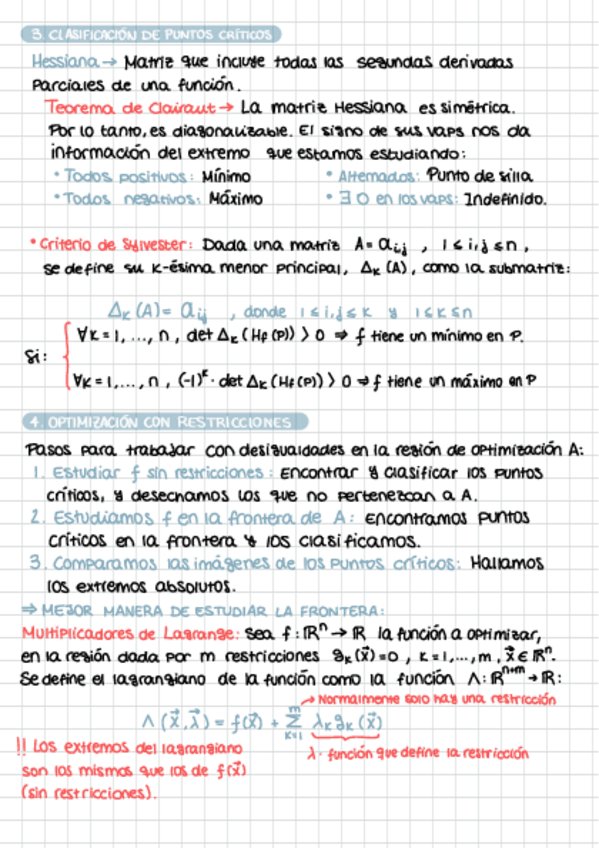 3. CLASIFICACIÓN DE PUNTOS CRÍTICOS
Hessiana → Matriz que incluye todas las segundas derivadas
Parciales de una función.
Teorema de Clairaut → La matriz Hessiana es simétrica.
Por lo tanto, es diagonalizable. El signo de sus vaps nos da
información del extremo que estamos estudiando:
• Todos positivos: Mínimo • Alternados: Punto de silla
• Todos negativos: Máximo • ∃ 0 en los vaps: Indefinido.
• Criterio de Sylvester: Dada una matriz A = aᵢ,ⱼ , 1 ≤ i,j ≤ n ,
se define su k-ésima menor principal, Δₖ (A), como la submatriz:
Δₖ (A) = aᵢⱼ , donde 1 ≤ i,j ≤ k y 1 ≤ k ≤ n
Si: ∀k = 1, ..., n , det Δₖ (Hf (P)) > 0 ⇒ f tiene un mínimo en P.
∀k = 1,..., n , (-1)ᵏ · det Δₖ (Hf (P)) > 0 ⇒ f tiene un máximo en P
4. OPTIMIZACIÓN CON RESTRICCIONES
Pasos para trabajar con desigualdades en la región de optimización A:
1. Estudiar f sin restricciones: Encontrar y clasificar los puntos
críticos, y desechamos los que no pertenezcan a A.
2. Estudiamos f en la frontera de A: Encontramos puntos
críticos en la frontera y los clasificamos.
3. Comparamos las imágenes de los puntos críticos: Hallamos
los extremos absolutos.
⇒ MEJOR MANERA DE ESTUDIAR LA FRONTERA:
Multiplicadores de Lagrange: Sea f: ℝⁿ → ℝ la función a optimizar,
en la región dada por m restricciones gₖ(x⃗) = 0 , k = 1,..., m , x⃗ ∈ ℝⁿ.
Se define el lagrangiano de la función como la función Λ: ℝⁿ⁺ᵐ → ℝ:
→ Normalmente solo hay una restricción
Λ (x⃗, λ⃗) = f(x⃗) + Σₖ₌₁ᵐ λₖ gₖ (x⃗)
!! Los extremos del lagrangiano
λ · función que define la restricción
son los mismos que los de f(x⃗)
(sin restricciones).